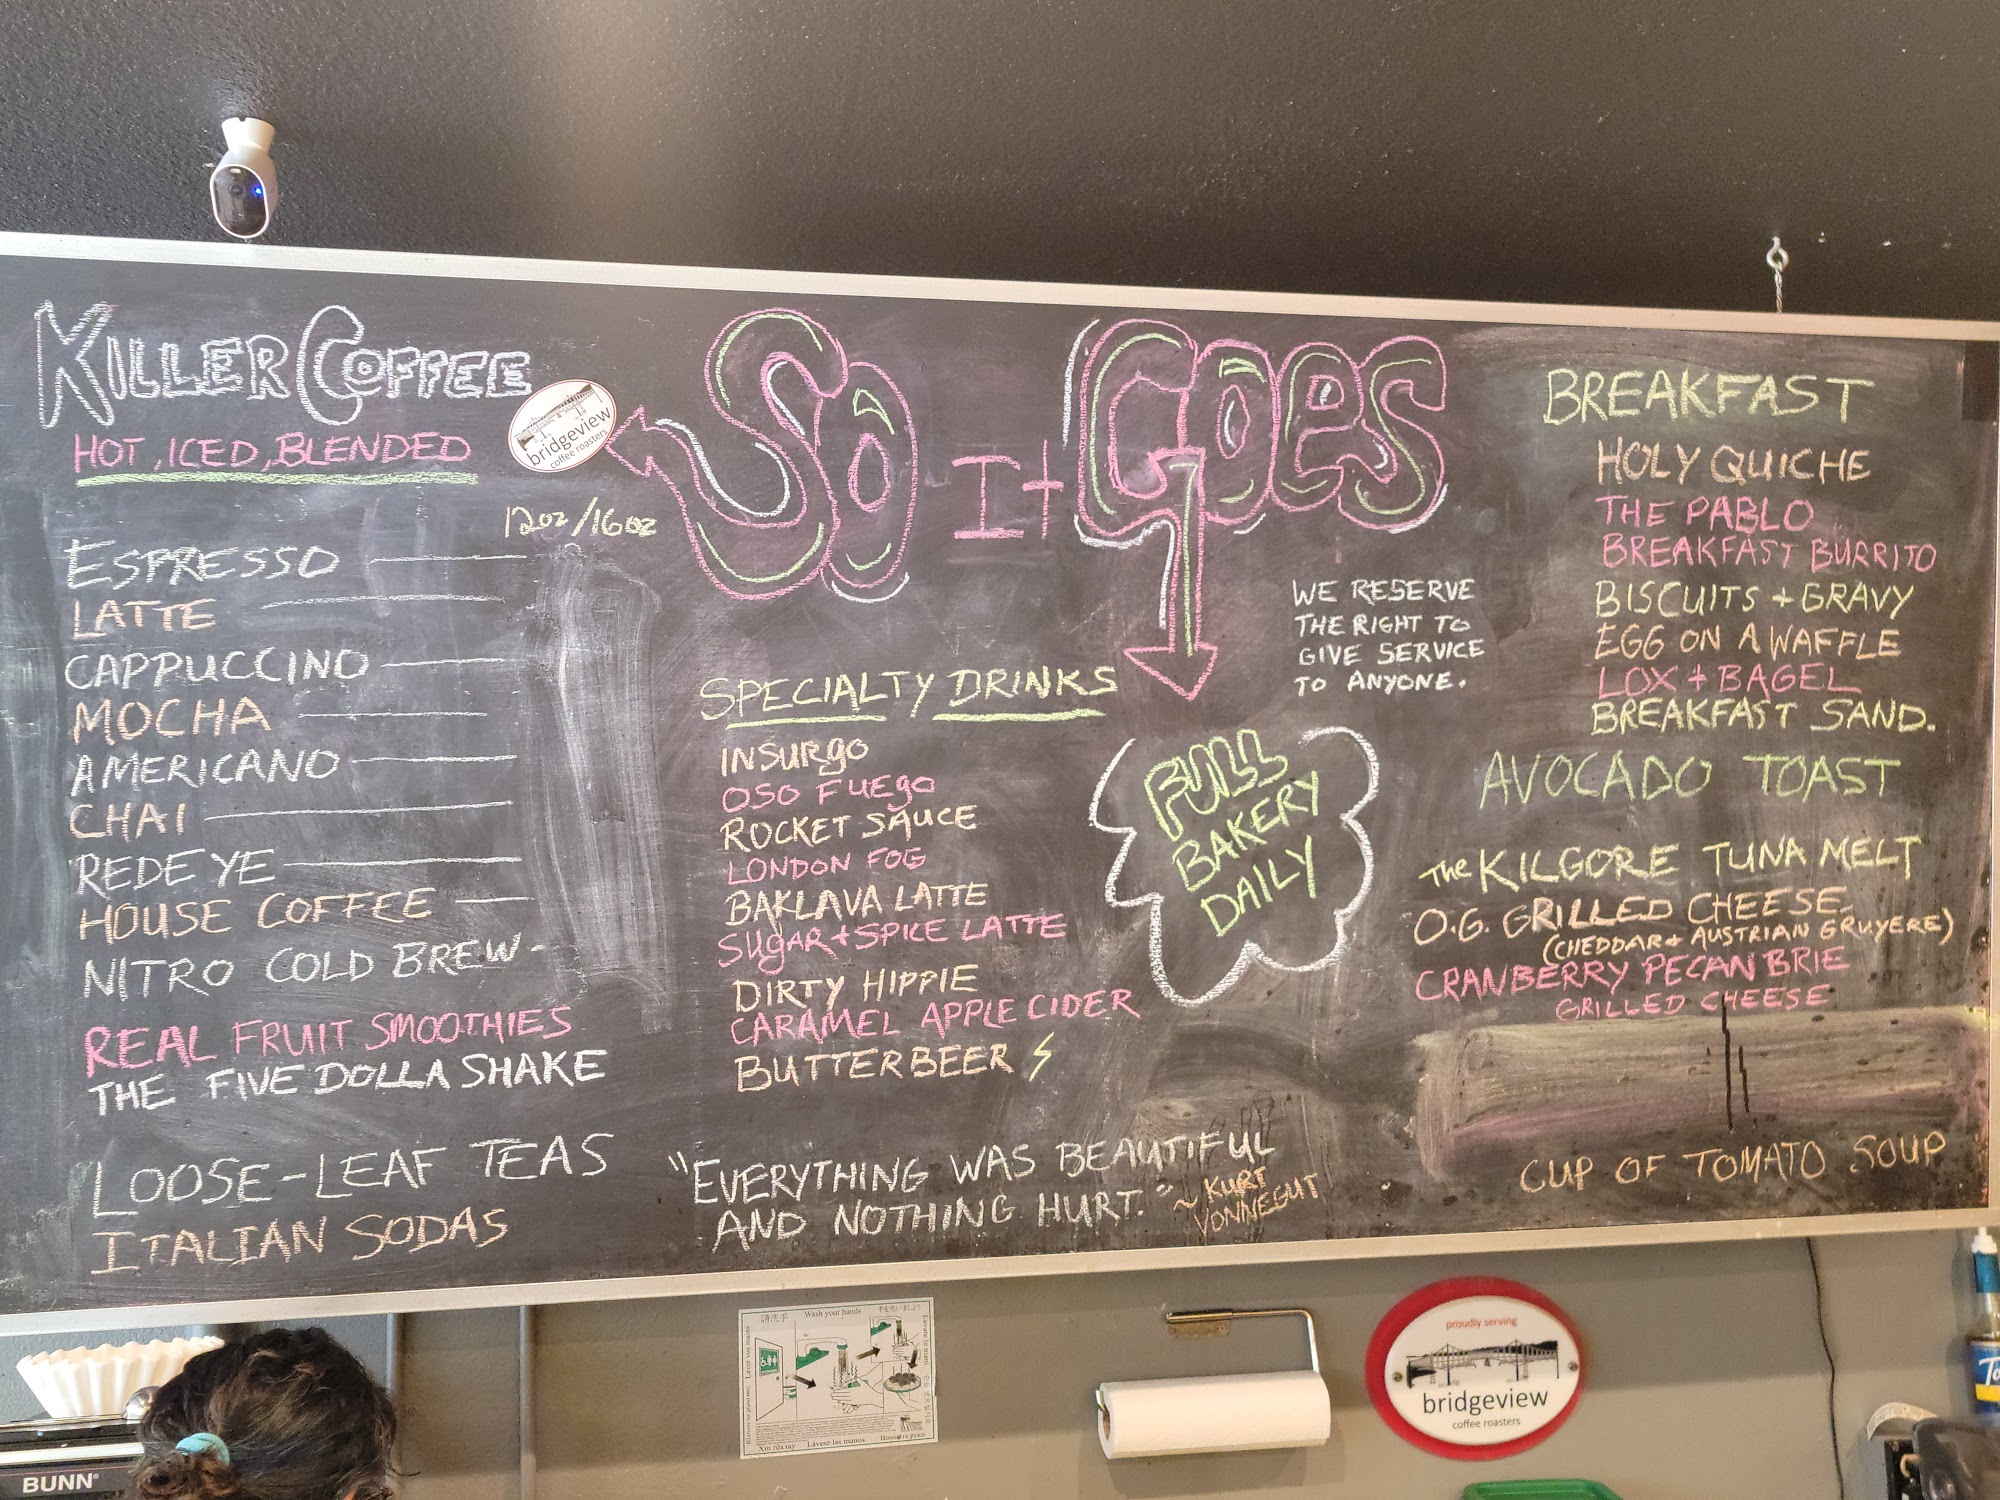 KILLER COFFEE
HOT, ICED, BLENDED
bridgeview
coffee roasters
12oz/16oz
ESPRESSO
LATTE
CAPPUCCINO
MOCHA
AMERICANO
CHAI
REDEYE
HOUSE COFFEE
NITRO COLD BREW
REAL FRUIT SMOOTHIES
THE FIVE DOLLA SHAKE
LOOSE-LEAF TEAS
ITALIAN SODAS
So It Goes
SPECIALTY DRINKS
INSURgO
OSO FUEgO
ROCKET SAUCE
LONDON FOG
BAKLAVA LATTE
SUgAR+SPICE LATTE
DIRTY HIPPIE
CARAMEL APPLE CIDER
BUTTERBEER
WE RESERVE
THE RIGHT TO
GIVE SERVICE
TO ANYONE.
FULL
BAKERY
DAILY
"EVERYTHING WAS BEAUTIFUL
AND NOTHING HURT."
~ KURT
VONNEGUT
BREAKFAST
HOLY QUICHE
THE PABLO
BREAKFAST BURRITO
BISCUITS + GRAVY
EGG ON A WAFFLE
LOX + BAGEL
BREAKFAST SAND.
AVOCADO TOAST
THE KILGORE TUNA MELT
O.G. GRILLED CHEESE
(CHEDDAR+ AUSTRIAN GRUYERE)
CRANBERRY PECAN BRIE
GRILLED CHEESE
CUP OF TOMATO SOUP
BUNN
請洗手 Wash your hands
Xin rửa tay Lávese las manos
proudly serving
bridgeview
coffee roasters